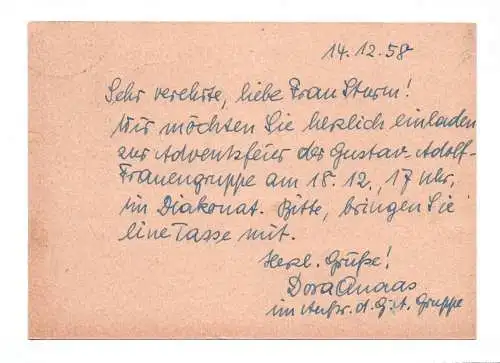 14.12.58
Sehr verehrte, liebe Frau Sturm!
Wir möchten Sie herzlich einladen
zur Adventsfeier der Gustav-Adolf-
Frauengruppe am 18.12., 17 Uhr,
im Diakonat. Bitte, bringen Sie
eine Tasse mit.
Herzl. Grüße!
Dora
im Auftr. d. G. A. Gruppe